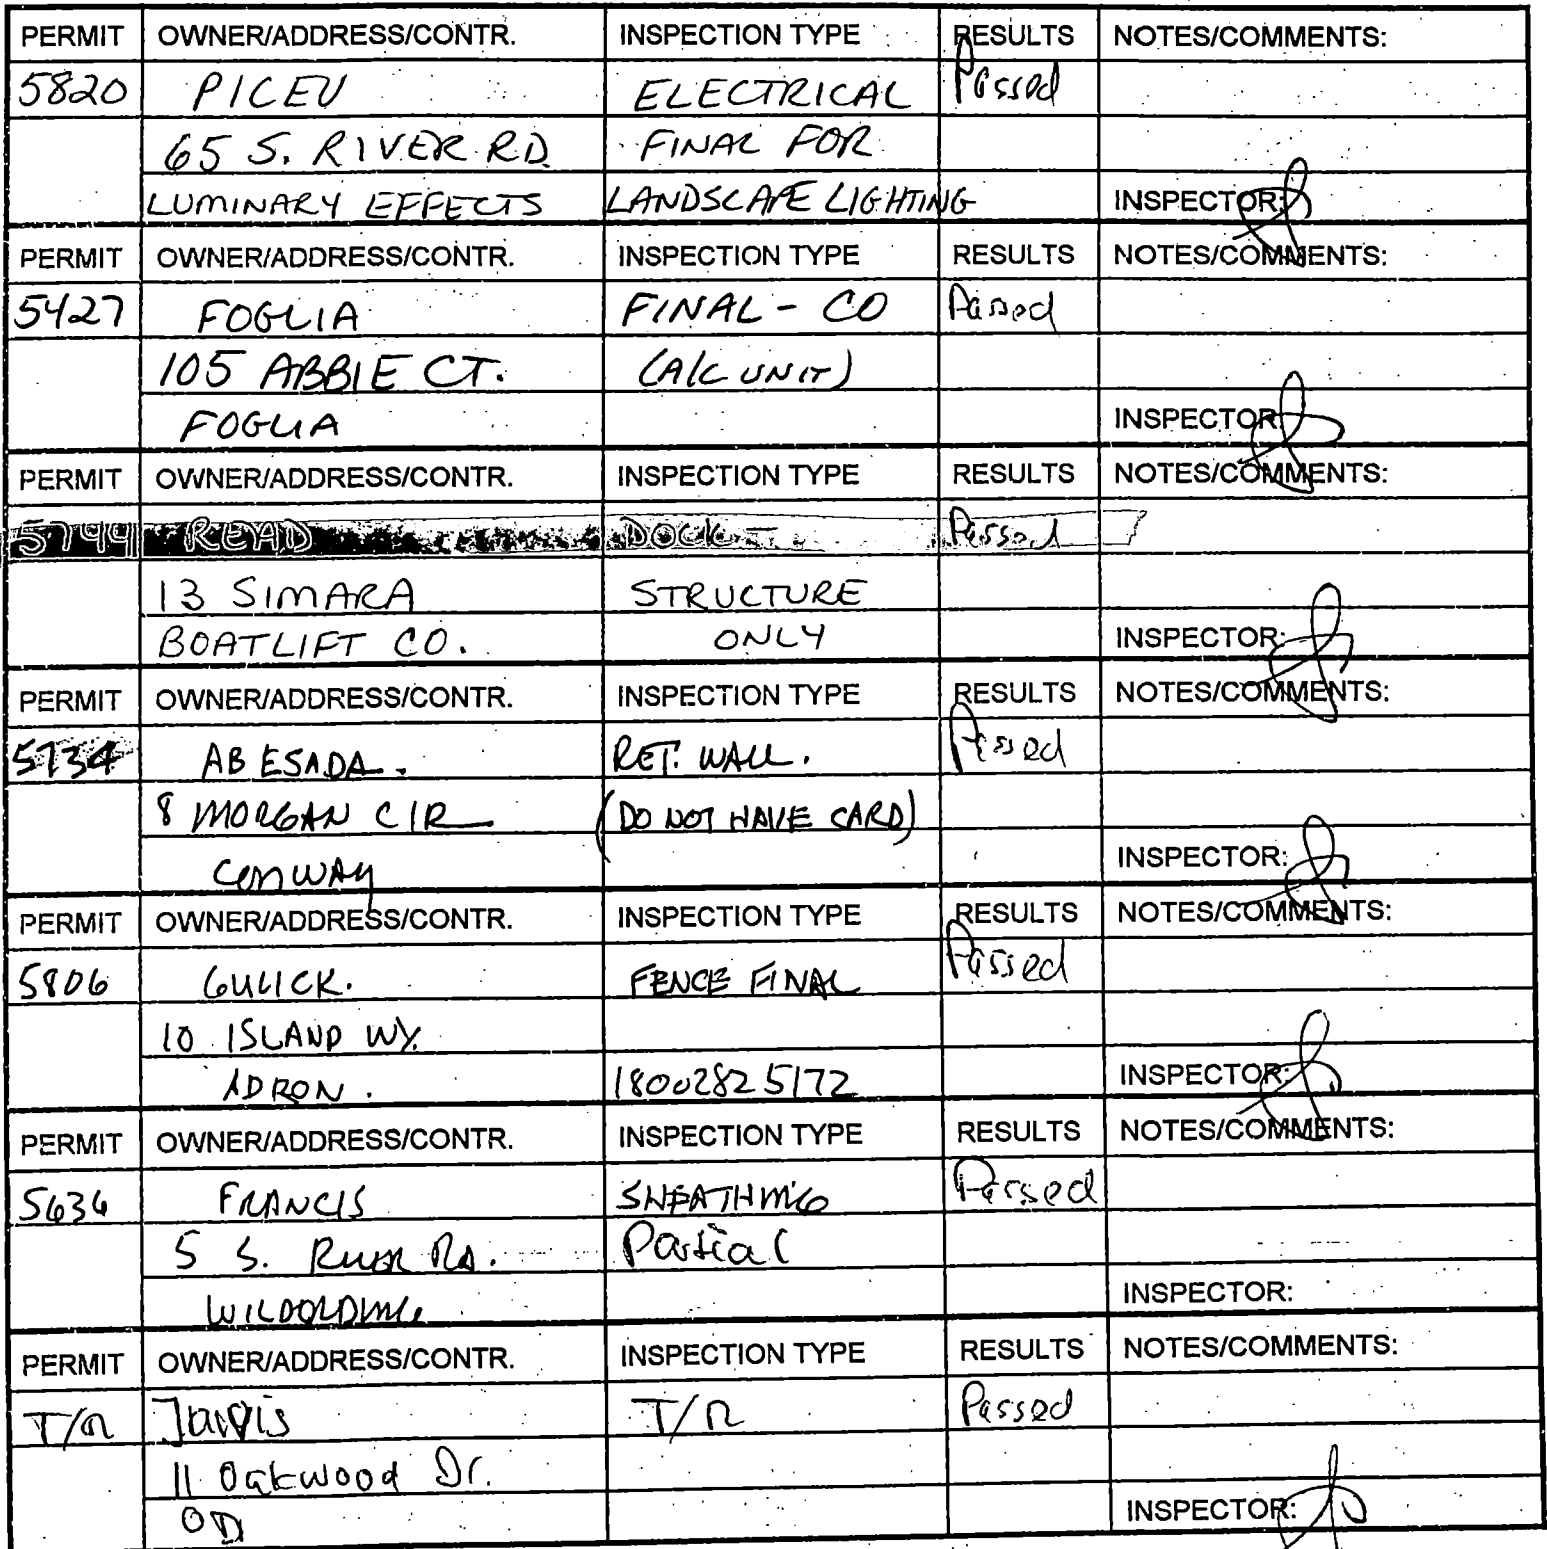 PERMIT OWNER/ADDRESS/CONTR. INSPECTION TYPE RESULTS NOTES/COMMENTS:
5820 PICEU ELECTRICAL Passed
65 S. RIVER RD. FINAL FOR
LUMINARY EFFECTS LANDSCAPE LIGHTING INSPECTOR:
PERMIT OWNER/ADDRESS/CONTR. INSPECTION TYPE RESULTS NOTES/COMMENTS:
5427 FOGLIA FINAL - CO Passed
105 ABBIE CT. (A/C UNIT)
FOGLIA INSPECTOR:
PERMIT OWNER/ADDRESS/CONTR. INSPECTION TYPE RESULTS NOTES/COMMENTS:
5744 READ DOCK - Passed
13 SIMARA STRUCTURE
BOATLIFT CO. ONLY INSPECTOR:
PERMIT OWNER/ADDRESS/CONTR. INSPECTION TYPE RESULTS NOTES/COMMENTS:
5734 ABESADA. RET. WALL. Passed
8 MORGAN CIR (DO NOT HAVE CARD)
CONWAY INSPECTOR:
PERMIT OWNER/ADDRESS/CONTR. INSPECTION TYPE RESULTS NOTES/COMMENTS:
5806 GULICK. FENCE FINAL Passed
10 ISLAND WY.
ADRON. 18002825172 INSPECTOR:
PERMIT OWNER/ADDRESS/CONTR. INSPECTION TYPE RESULTS NOTES/COMMENTS:
5636 FRANCIS SHEATHING Passed
5 S. RIVER RD. Partial
INSPECTOR:
PERMIT OWNER/ADDRESS/CONTR. INSPECTION TYPE RESULTS NOTES/COMMENTS:
T/R Jarvis T/R Passed
11 Oakwood Dr.
INSPECTOR: